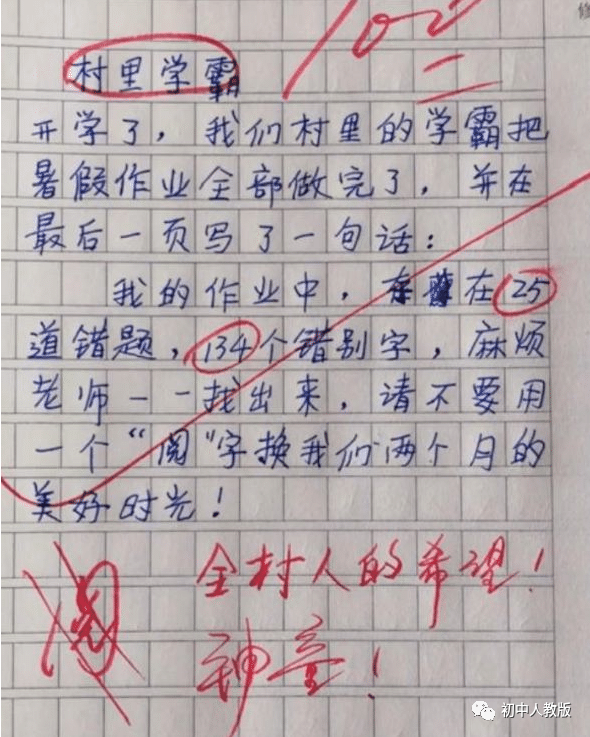 100
村里学霸
开学了，我们村里的学霸把
暑假作业全部做完了，并在
最后一页写了一句话：
我的作业中，存在25
道错题，134个错别字，麻烦
老师一一找出来，请不要用
一个“阅”字换我们两个月的
美好时光！
全村人的希望！
阅
神童！
初中人教版